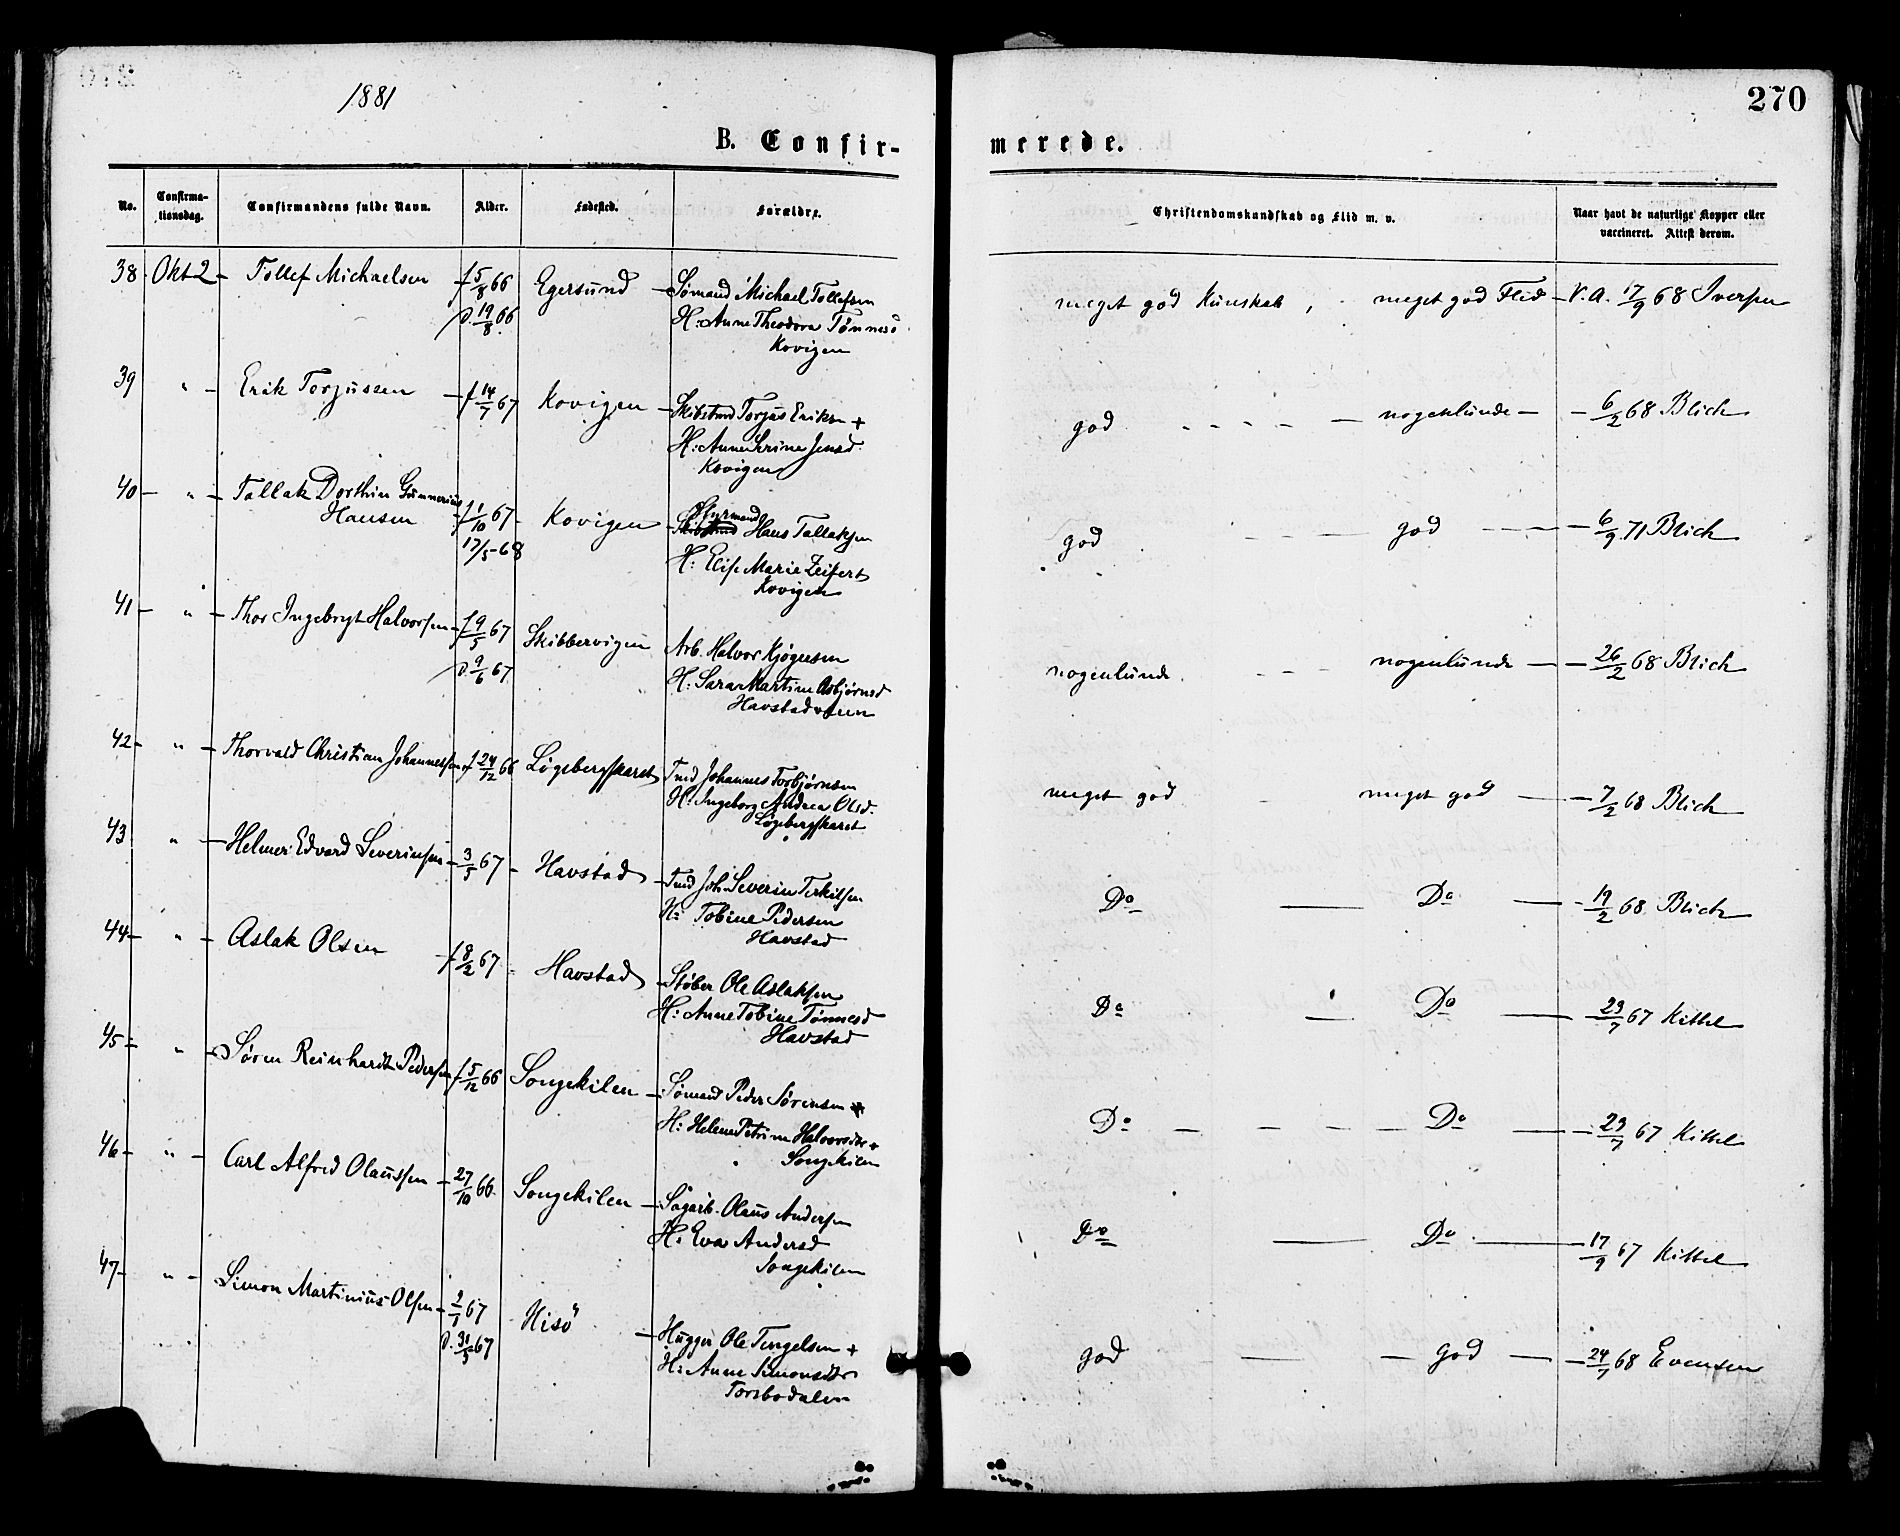 1881
270
B. Confir-
merede.
No. Confirma-tionsdag. Confirmandens fulde Navn. Alder. Fødested. Forældre. Christendomskundskab og Flid m. v. Naar havt de naturlige Kopper eller vaccineret. Attest derom.
38 Okt 2 - Tollef Michaelsen f 5/8 66 Egersund - Sømand Michael Tollefsen meget god Kunskab, meget god Flid - V. A. 17/9 68 Iversen
d. 19/8 66 H: Anne Theodora Tønnesd
Kovigen
39 " - Erik Torjussen - f 14/7 67 Kovigen - Skibstmd Torjus Eriksen + god - - - - nogenlunde - - 6/2 68 Blich
H: Anne Serine Jensd.
Kovigen
40 - " - Tallak Dorthin Gunnerius f 1/10 67 - Kovigen - Styrmand Hans Tallaksen god - - - god - - - 6/9 71 Blich
Hansen 17/5-68 H: Elise Marie Zeifert
Kovigen
41 - " - Thor Ingebrygt Halvorsen - f 9/5 67 Skibbervigen Arb. Halvor Kjøgersen nogenlunde - - nogenlunde - - 26/2 68 Blich
d. 9/6 67 H: Sara Martine Asbjørnsd
Havstad
42 - " - Thorvald Christian Johannessen f 24/12 66 Løgebergskaret Tmd Johannes Torbjørnsen meget god - meget god - - 7/2 68 Blich
H: Ingeborg Andrea Olsd.
Løgebergskaret
43 " - Helmer Edvard Severinsen - 3/5 67 - Havstad - Tmd Joh. Severin Terkilsen Do - Do - - 19/2 68 Blich
H: Tobine Pedersen
Havstad
44 - " - Aslak Olsen - f 8/2 67 - Havstad - Støber Ole Aslaksen Do - Do - - 23/7 67 Kittel
H: Anne Tobine Tønnesd
Havstad
45 - " - Søren Reinhardt Pedersen f 5/12 66 Songekilen - Sømand Peder Sørensen + Do - - - - Do - - 23/7 67 Kittel
H: Helene Petrine Halvorsdtr +
Songekilen
46 - " - Carl Alfred Olaussen - 27/10 66 Songekilen - Sagarb. Olaus Andersen Do - Do - 17/9 67 Kittel
H: Eva Andersd
Songekilen
47 - " - Simon Martinius Olsen - 2/1 67 Hisö - Hugger Ole Tengelsen + god - - god - - 24/7 68 Evensen
d. 31/3 67 H: Anne Simonsdtr
Torsbodalen